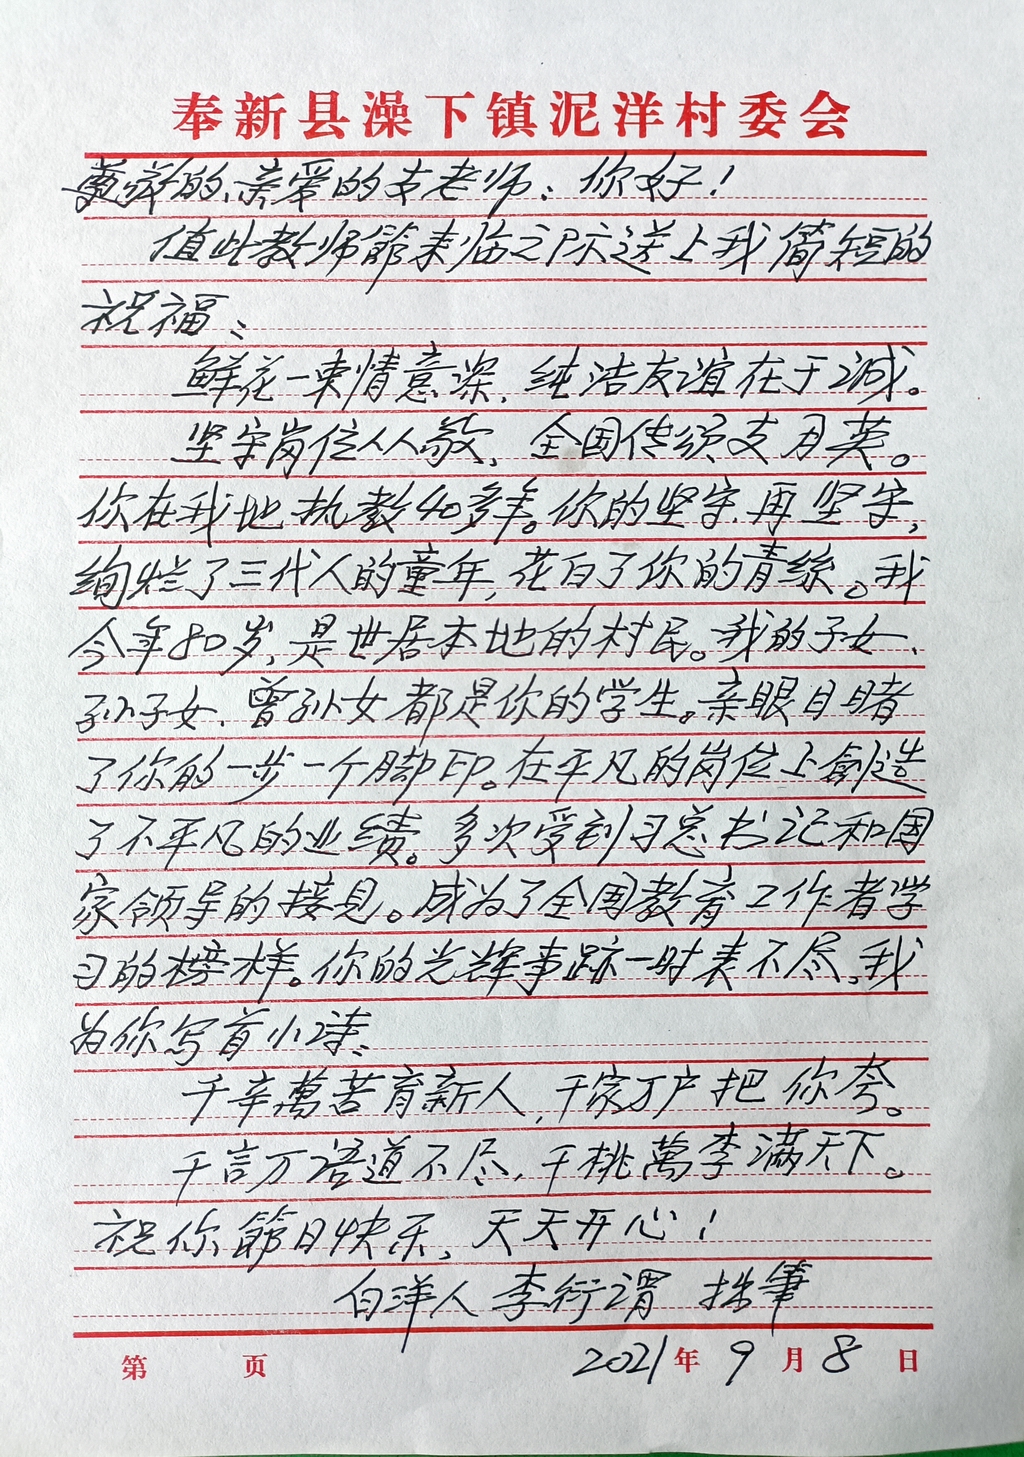 奉新县澡下镇泥洋村委会
尊敬的、亲爱的支老师：你好！
值此教师節来临之际送上我简短的
祝福：
鲜花一束情意深，纯洁友谊在于诚。
坚守岗位人人敬，全国传颂支月英。
你在我地执教40多年。你的坚守再坚守，
绚烂了三代人的童年，花白了你的青丝。我
今年80岁，是世居本地的村民。我的子女、
孙子女、曾孙女都是你的学生。亲眼目睹
了你的一步一个脚印。在平凡的岗位上創造
了不平凡的业绩。多次受到习总书记和国
家领导的接见。成为了全国教育工作者学
习的榜样。你的光辉事跡一时表不尽，我
为你写首小诗：
千辛萬苦育新人，千家万户把你夸。
千言万语道不尽，千桃萬李满天下。
祝你節日快乐、天天开心！
白洋人 李衍谓 拙筆
第 页 2021年9月8日